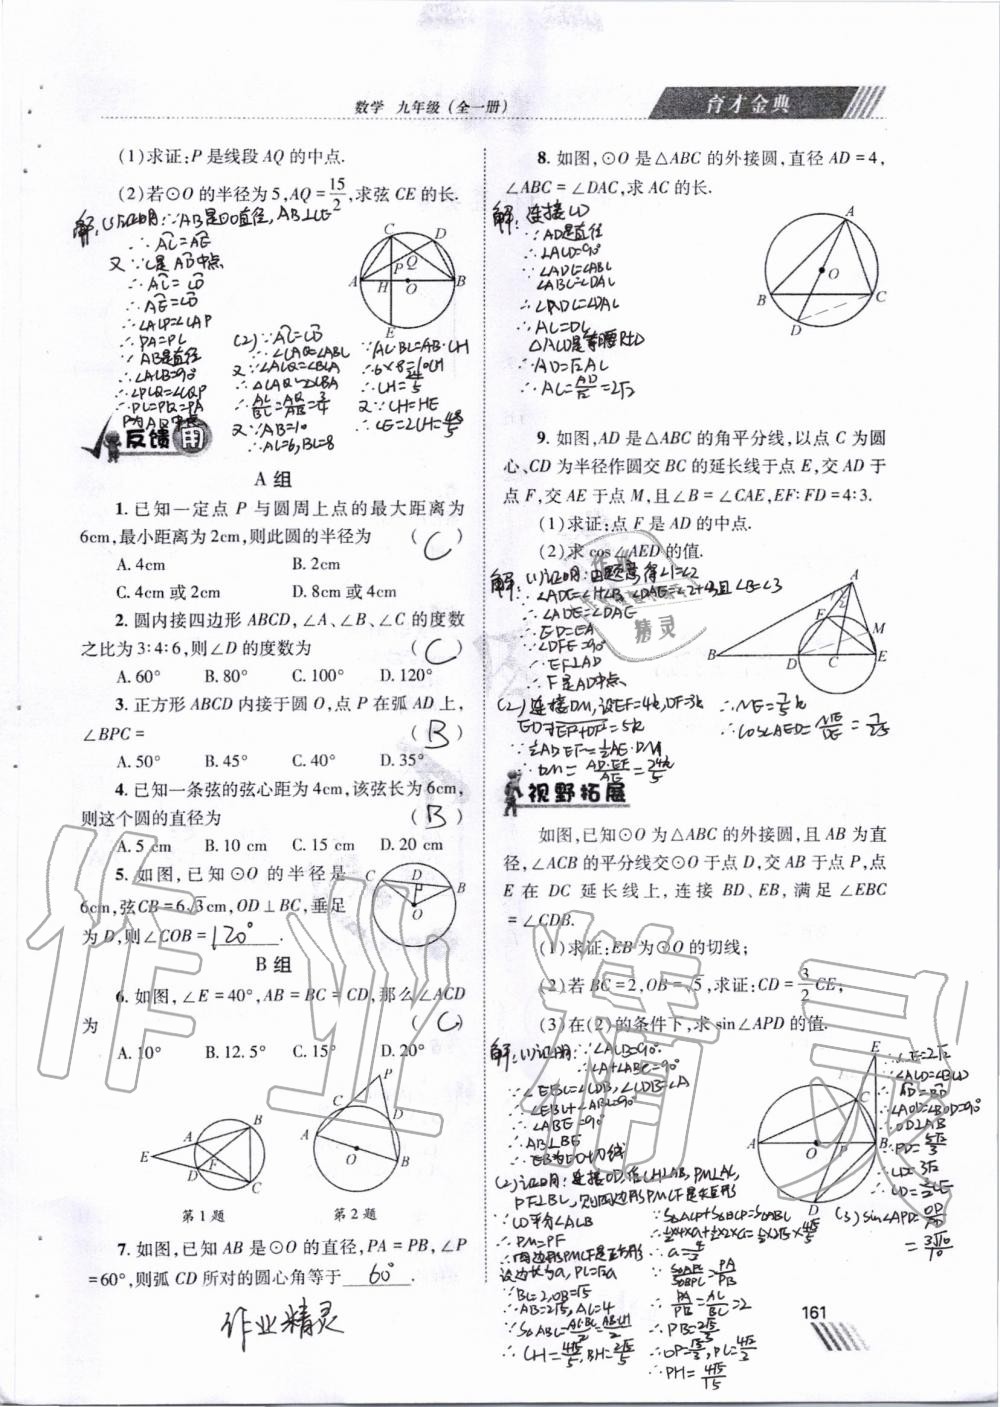 数学 九年级（全一册）
育才金典
(1)求证:P 是线段 AQ 的中点.
(2)若⊙O 的半径为 5,AQ = 15/2,求弦 CE 的长.
解:(1)证明:∵AB是⊙O直径,AB⊥CE
∴AC=AE
又∵C是AD中点
∴AC=CD
∴AE=CD
∴∠ACP=∠CAP
∴PA=PC
∵AB是直径
∴∠ACB=90°
∴∠PCQ=∠CQP
∴PC=PQ=PA
P为AQ中点
(2)∵AC=CD
∴∠CAQ=∠ABC
又∵∠ACQ=∠BCA
∴△CAQ∽△CBA
∴AC/BC=AQ/AB=3/4
又∵AB=10
∴AC=6,BC=8
∵AC·BC=AB·CH
∴6×8=10CH
∴CH=24/5
又∵CH=HE
∴CE=2CH=48/5
A B C D E H O P Q
反馈用
A 组
1. 已知一定点 P 与圆周上点的最大距离为
6cm,最小距离为 2cm,则此圆的半径为 ( C )
A. 4cm B. 2cm
C. 4cm 或 2cm D. 8cm 或 4cm
2. 圆内接四边形 ABCD,∠A、∠B、∠C 的度数
之比为 3∶4∶6,则∠D 的度数为 ( C )
A. 60° B. 80° C. 100° D. 120°
3. 正方形 ABCD 内接于圆 O,点 P 在弧 AD 上,
∠BPC = ( B )
A. 50° B. 45° C. 40° D. 35°
4. 已知一条弦的弦心距为 4cm,该弦长为 6cm,
则这个圆的直径为 ( B )
A. 5 cm B. 10 cm C. 15 cm D. 20 cm
5. 如图,已知⊙O 的半径是
6cm,弦 CB = 6√3 cm,OD⊥BC,垂足
为 D,则∠COB = 120°.
C D B O
B 组
6. 如图,∠E = 40°,AB = BC = CD,那么∠ACD
为 ( C )
A. 10° B. 12. 5° C. 15° D. 20°
E A B D F C
P C D A O B
第 1 题 第 2 题
7. 如图,已知 AB 是⊙O 的直径,PA = PB,∠P
= 60°,则弧 CD 所对的圆心角等于 60°.
作业精灵
8. 如图,⊙O 是△ABC 的外接圆,直径 AD = 4,
∠ABC = ∠DAC,求 AC 的长.
解:连接CD
∵AD是直径
∴∠ACD=90°
∵∠ADC=∠ABC
∠ABC=∠DAC
∴∠ADC=∠DAC
∴AC=DC
△ACD是等腰Rt△
∴AD=√2AC
∴AC=AD/√2=2√2
A B C D O
9. 如图,AD 是△ABC 的角平分线,以点 C 为圆
心、CD 为半径作圆交 BC 的延长线于点 E,交 AD 于
点 F,交 AE 于点 M,且∠B = ∠CAE,EF∶FD = 4∶3.
(1)求证:点 F 是 AD 的中点.
(2)求 cos∠AED 的值.
解:(1)证明:由题意得∠1=∠2
∴∠ADE=∠1+∠B,∠DAE=∠2+∠3且∠B=∠3
∴∠ADE=∠DAE
∴ED=EA
∵∠DFE=90°
∴EF⊥AD
∴F是AD中点
(2)连接DM,设EF=4k,DF=3k
ED=√EF²+DF²=5k
∵½AD·EF=½AE·DM
∴DM=AD·EF/AE=24k/5
∴ME=7/5k
∴cos∠AED=ME/DE=7/25
A B C D E F M
视野拓展
如图,已知⊙O 为△ABC 的外接圆,且 AB 为直
径,∠ACB 的平分线交⊙O 于点 D,交 AB 于点 P,点
E 在 DC 延长线上,连接 BD、EB,满足∠EBC
= ∠CDB.
(1)求证:EB 为⊙O 的切线;
(2)若 BC = 2,OB = √5,求证:CD = 3/2 CE;
(3)在(2)的条件下,求 sin∠APD 的值.
解:(1)证明:∵∠ACB=90°
∴∠A+∠ABC=90°
∵∠EBC=∠CDB,∠CDB=∠A
∴∠EBC+∠ABC=90°
∴∠ABE=90°
∴AB⊥BE
∴EB为⊙O切线
(2)证明:连接OD,作CH⊥AB,PM⊥AC,
PF⊥BC,则四边形PMCF是矩形
∵CD平分∠ACB
∴PM=PF
∴四边形PMCF是正方形
设边长为a,PC=√2a
∵BC=2,OB=√5
∴AB=2√5,AC=4
∵S△ABC=AC·BC/2=AB·CH/2
∴CH=4√5/5,BH=2√5/5
∵S△ACP+S△BCP=S△ABC
∴a=4/3
∵S△APC/S△BPC=PA/PB
∴PA/PB=AC/BC=2
∴PB=2√5/3
∴OP=√5/3,PC=4√2/3
∴PH=4√5/15
∴CE=2√2
∵∠ACD=∠BCD
∴AD=BD
∴∠AOD=∠BOD=90°
∴OD⊥AB
∴PD=5√2/3
∴CD=3√2
∴CD=3/2CE
(3)sin∠APD=OD/PD
=3√10/10
E C A O P B D
161
作业精灵